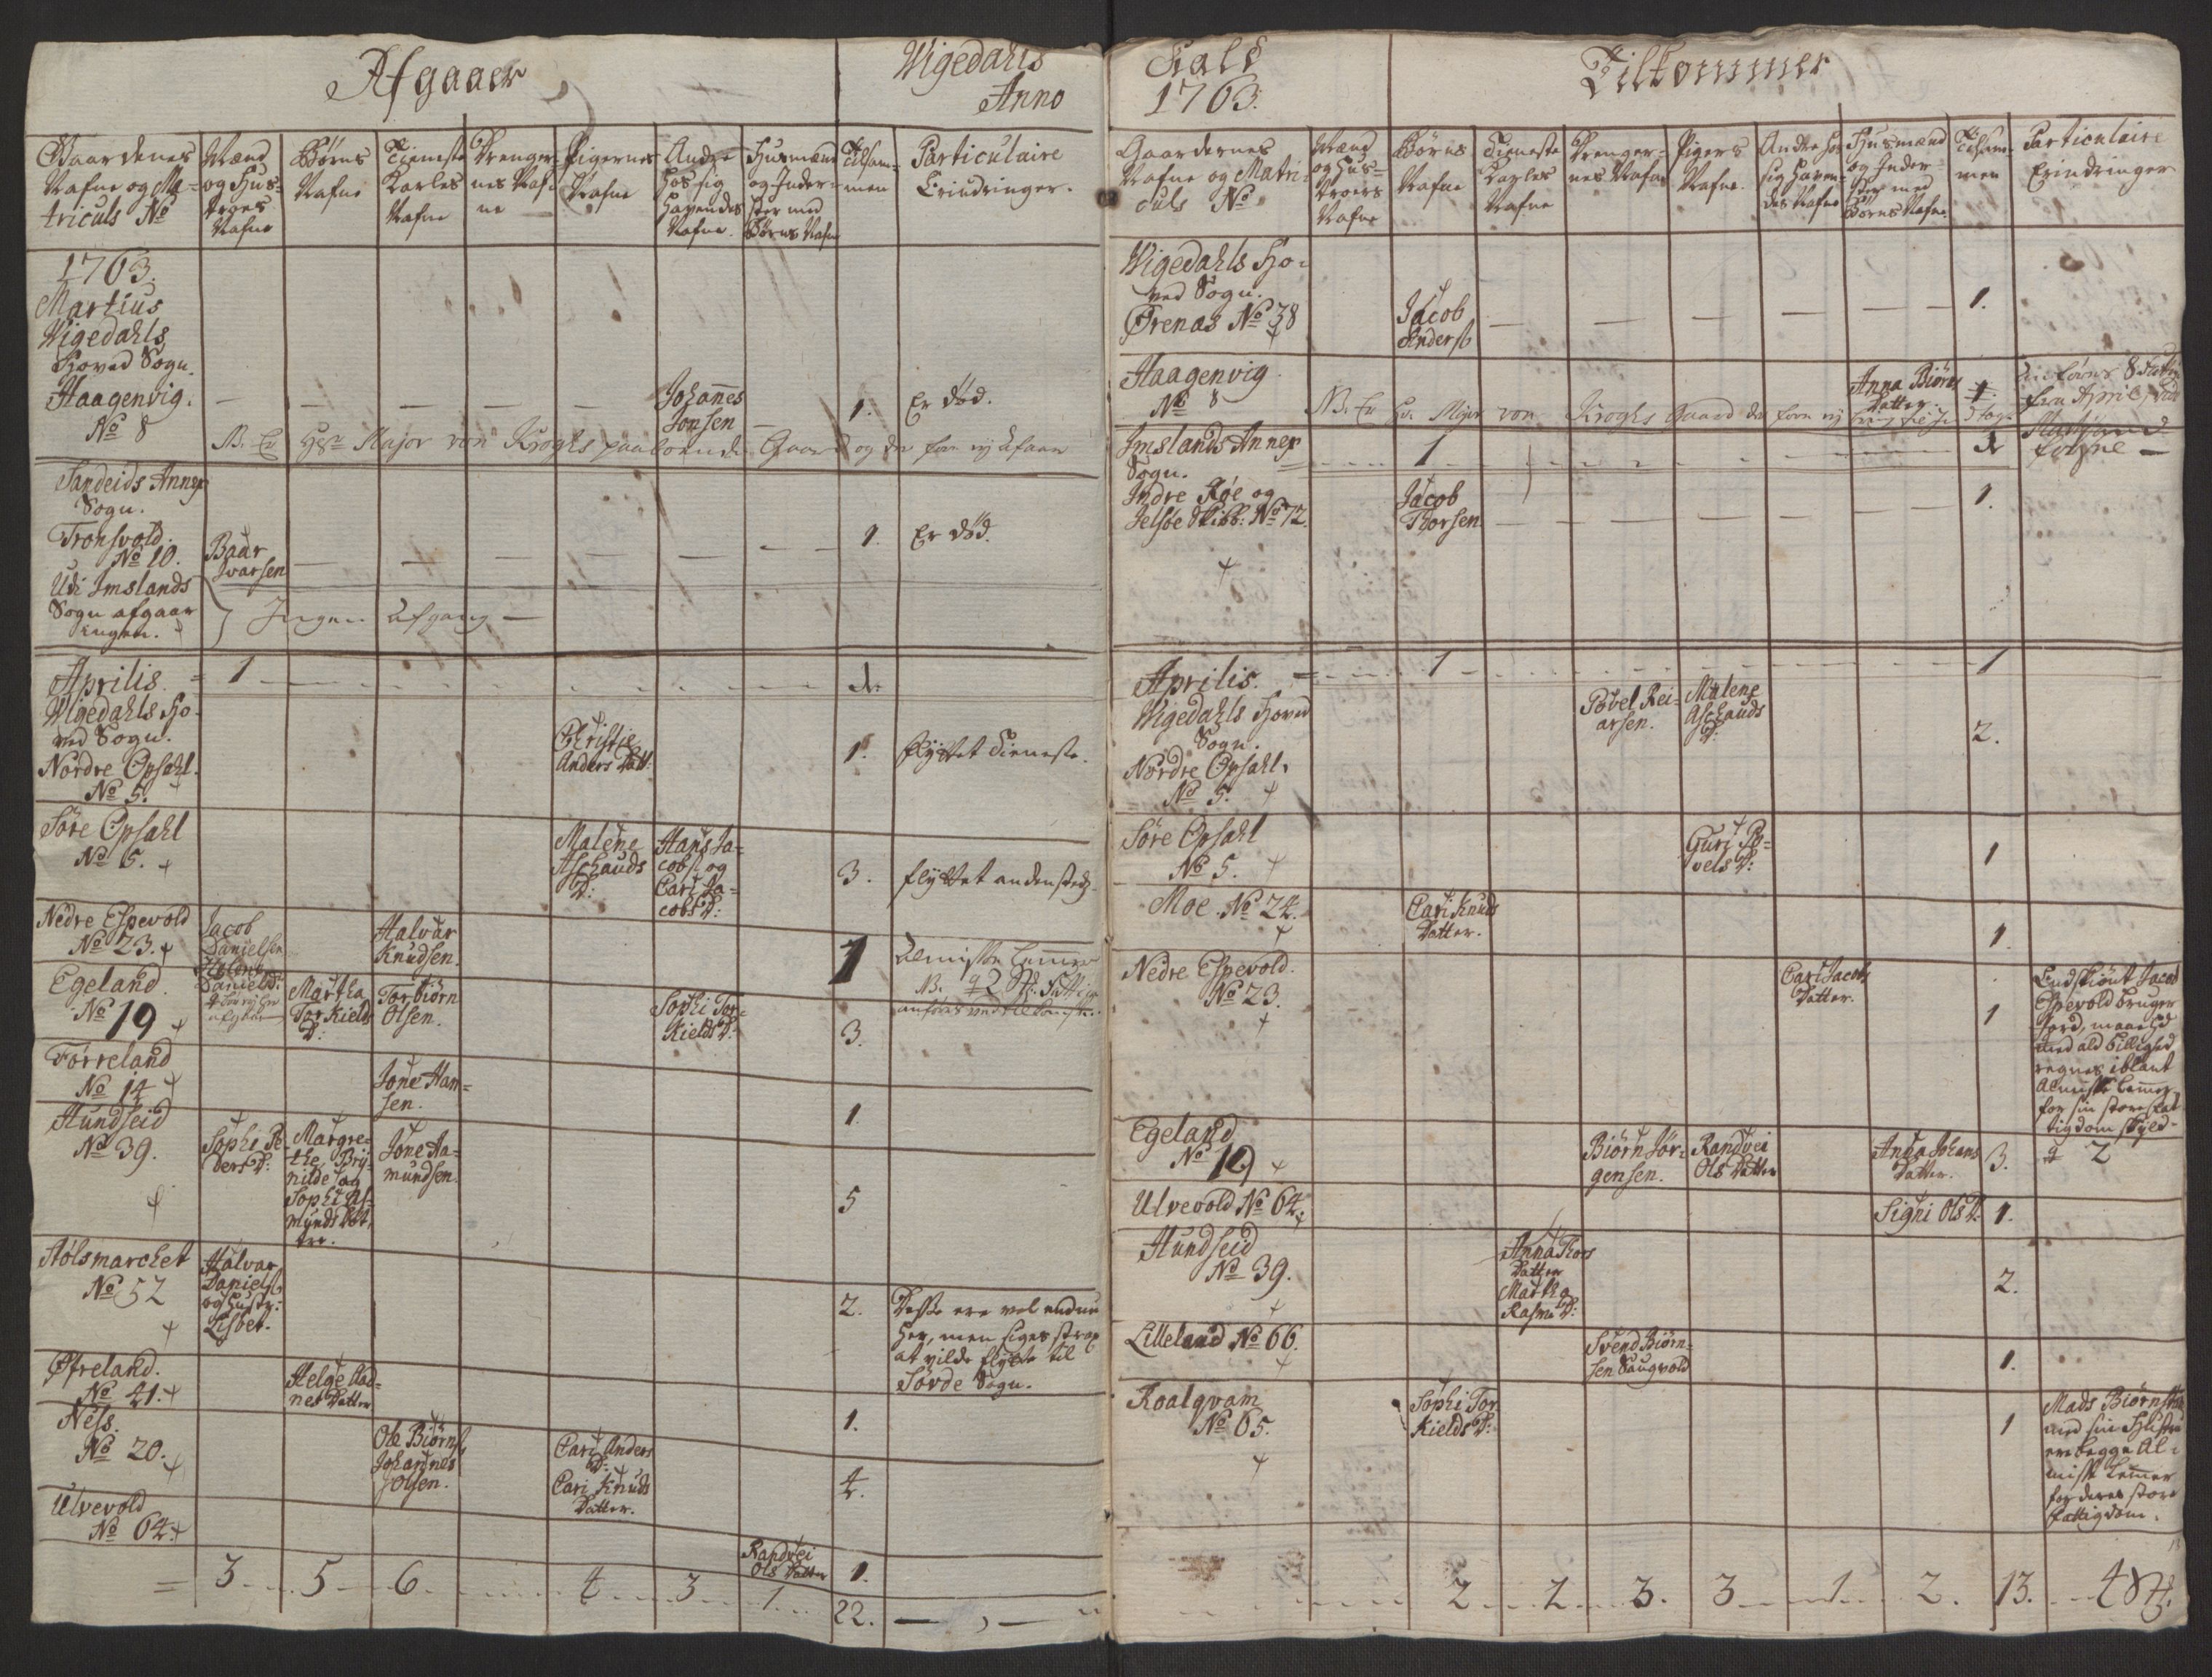 Afgaaer
Wigedahls
Anno
Gaardenes
Nafne og Ma-
triculs No
Mænd
og Hus-
troes
Nafne
Børns
Nafne
Tieneste
Karles
Nafne
Drenger-
nes Naf-
ne
Pigernes
Nafne
Andre
hos sig
havendes
Nafne.
Husmænd
og Inder-
ster med
Børns Nafne
Tilsam-
men
Particulaire
Erindringer.
1763.
Martius
Wigedahls
Hoved Sogn.
Haagenvig.
No 8
Johannes
Jonsen
1.
Er død.
NB. Er Hr. Major von Kroghs paaboende Gaard og der for
Sandeids Annex
Sogn.
Tronsvold.
No 10.
Baar
Ivarsen
1.
Er død.
Udi Imslands
Sogn afgaar
ingen.
Ingen Afgang
Aprilis.
1
1.
Wigedahls Ho-
ved Sogn.
Nordre Opsahl.
No 5.
Christie
Anders Datt:
1.
flyttet Tieneste.
Søre Opsahl
No 5.
Malene
Aschauds
D:
Hans Ja-
cobs. og
Cari Ja-
cobs D:
3.
flyttet andensteds.
Nedre Espevold
No 23.
Jacob
Danielsen
Helene
Daniels D:
Halvar
Knudsen.
1
Almisse Lemmer
Egeland
No 19
Martha
Torkields
D:
Torbiørn
Olsen.
Sophi Tor-
kields D:
3.
Førreland
No 14
Jone Han-
sen.
1.
Hundseid
No 39.
Sophi Pe-
ders D:
Margre-
the, Bry-
nilde og
Sophi As-
mynds Døt-
tre.
Jone Aa-
mundsen.
5
Aølsmarchet
No 52
Halvar
Daniels.
og Hustr:
Lisbet.
2.
Disse ere vel endnu
her, men siges strax
at vilde flytte til
Søvde Sogn.
Øfreland.
No 41.
Helge Aad-
nes Datter
1.
Nes.
No 20.
Ole Biørns.
Johannes
Olsen.
Cari Anders
D:
Cari Knuds
Datter.
4.
Ulvevold
No 64.
Randvei
Ols Datter
1.
3 5 6 4 3 1 22.
Sals
1763.
Tilkommer
Gaardernes
Nafne og Matri-
culs No
Mænd
og Hus-
troers
Nafne
Børns
Nafne
Tieneste
Karles
Nafne
Drenger-
nes Nafne
Pigers
Nafne.
Andre hos
sig haven-
des Nafne
Husmænd
og Inder-
ster med
Børns Nafne.
Tilsam-
men
Particulaire
Erindringer
Wigedahls Ho-
ved Sogn.
Ørenas No 38
Jacob
Anders.
1.
Haagenvig
No 8
Anna Biørns
Datter.
1.
NB. Er Hr. Major von Kroghs Gaard
Imslands Annex
Sogn.
1
1
Indre Røe og
Jelsøe Skibb: No 72.
Jacob
Thorsen
1.
Aprilis.
1
1
Wigedahls Hoved
Sogn.
Nordre Opsahl.
No 5.
Povel Rei-
arsen.
Malene
Aschauds
D:
2.
Søre Opsahl
No 5.
Guri Po-
vels D:
1
Moe. No 24.
Cari Knuds
Datter.
1.
Nedre Espevold.
No 23.
Cari Jacobs
Datter.
1
Endskiønt Jacob
Espevold bruger
Jord, maae hand
med ald billighed
regnes iblant
Almisse Lemmer
for sin store fat-
tigdom skyld.
Egeland
No 19
Biørn Jør-
gensen.
Randvei
Ols Datter
Anna Johans
Datter.
3.
2
Ulvevold No 64.
Signi Ols D:
1.
Hundseid
No 39.
Anna Thors
Datter
Martha
Rasm: D:
2.
Lilleland No 66.
Svend Biørn-
sen Saugvold
1.
Roalqvam
No 65.
Sophi Tor-
kields D:
1
Mads Biørns.
med sin Hustru
ere begge Al-
misse Lemmer
for deres store
fattigdom.
2 2 3. 3 1 2. 13. 4